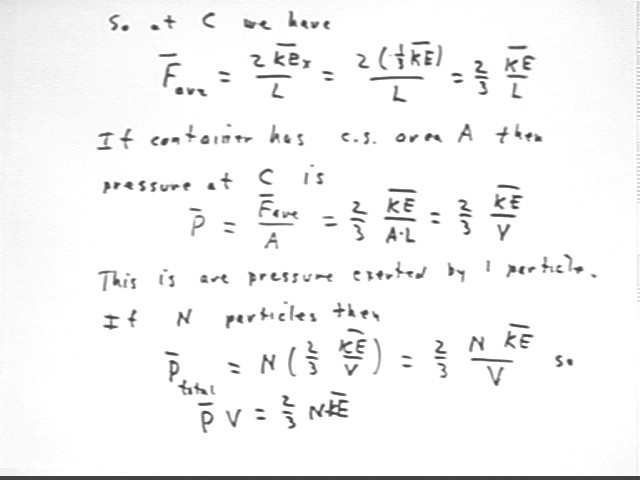 So at C we have
F̄ave = 2 K̄Ēx / L = 2 (⅓ K̄Ē) / L = ⅔ K̄Ē / L
If container has c.s. area A then
pressure at C is
P̄ = F̄ave / A = ⅔ K̄Ē / A·L = ⅔ K̄Ē / V
This is ave pressure exerted by 1 particle.
If N particles then
P̄total = N (⅔ K̄Ē / V) = ⅔ N K̄Ē / V so
P̄ V = ⅔ N K̄Ē